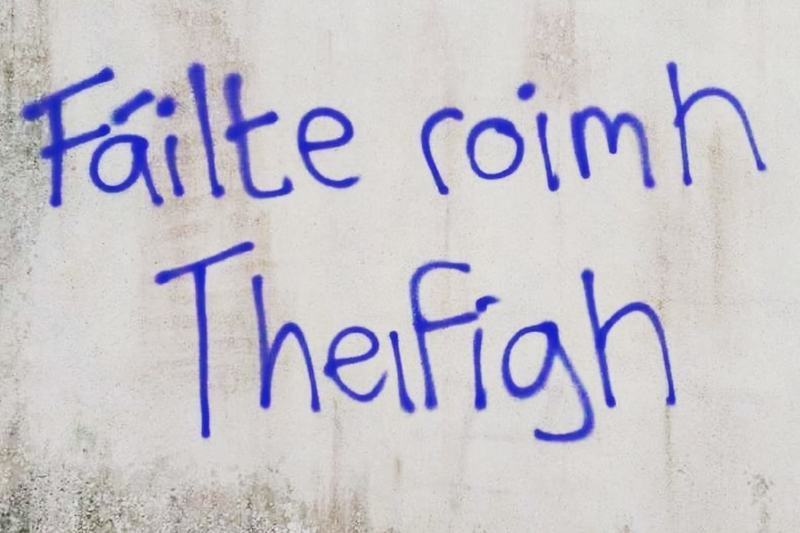 Fáilte roimh
Theifigh